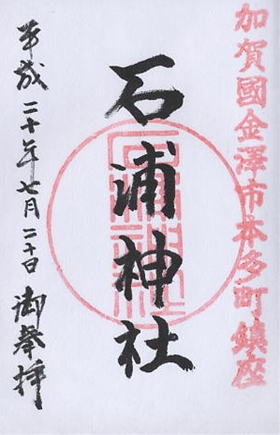 加賀國金澤市本多町鎮座
石浦神社
平成二十年七月二十日 御参拝